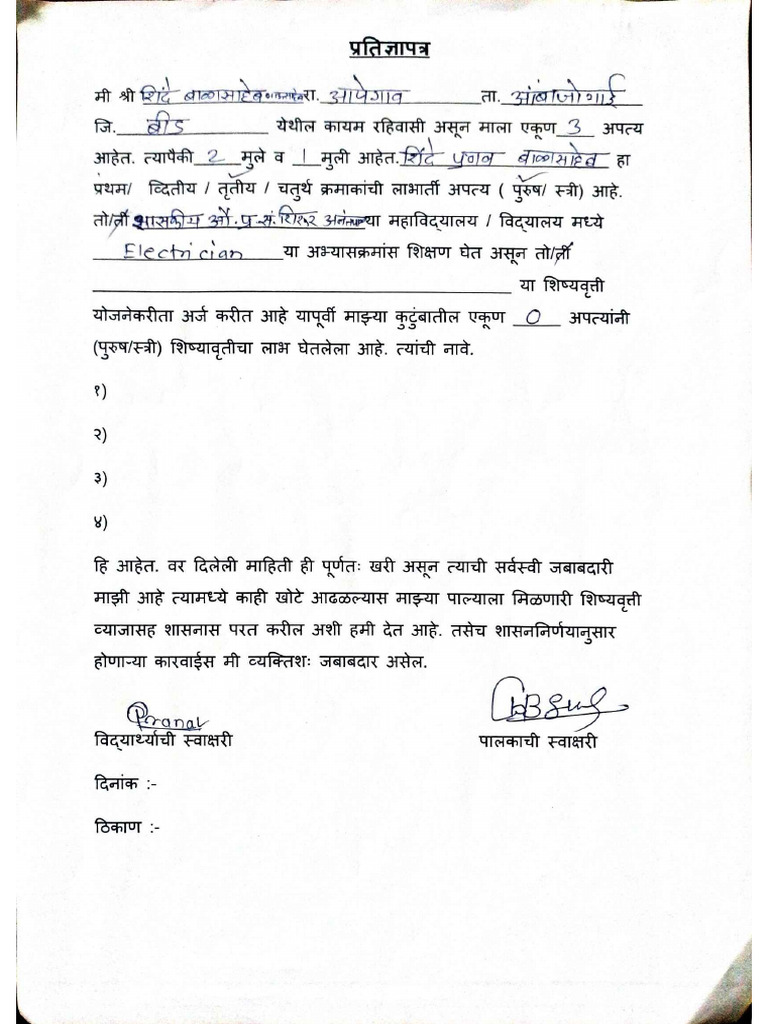 प्रतिज्ञापत्र
मी श्री शिंदे बाळासाहेब रा. आपेगाव ता. आंबाजोगाई
जि. बीड येथील कायम रहिवासी असून माला एकूण 3 अपत्य
आहेत. त्यापैकी 2 मुले व 1 मुली आहेत. शिंदे प्रणव बाळासाहेब हा
प्रंथम/ व्दितीय / तृतीय / चतुर्थ क्रमाकांची लाभार्ती अपत्य ( पुरुष/ स्त्री) आहे.
तो/ती शासकीय औ.प्र.सं. या महाविद्यालय / विद्यालय मध्ये
Electrician या अभ्यासक्रमांस शिक्षण घेत असून तो/ती
या शिष्यवृत्ती
योजनेकरीता अर्ज करीत आहे यापूर्वी माझ्या कुटुंबातील एकूण 0 अपत्यांनी
(पुरुष/स्त्री) शिष्यावृतीचा लाभ घेतलेला आहे. त्यांची नावे.
१)
२)
३)
४)
हि आहेत. वर दिलेली माहिती ही पूर्णतः खरी असून त्याची सर्वस्वी जबाबदारी
माझी आहे त्यामध्ये काही खोटे आढळल्यास माझ्या पाल्याला मिळणारी शिष्यवृत्ती
व्याजासह शासनास परत करील अशी हमी देत आहे. तसेच शासननिर्णयानुसार
होणाऱ्या कारवाईस मी व्यक्तिशः जबाबदार असेल.
Pranav
विद्यार्थ्याची स्वाक्षरी पालकाची स्वाक्षरी
दिनांक :-
ठिकाण :-